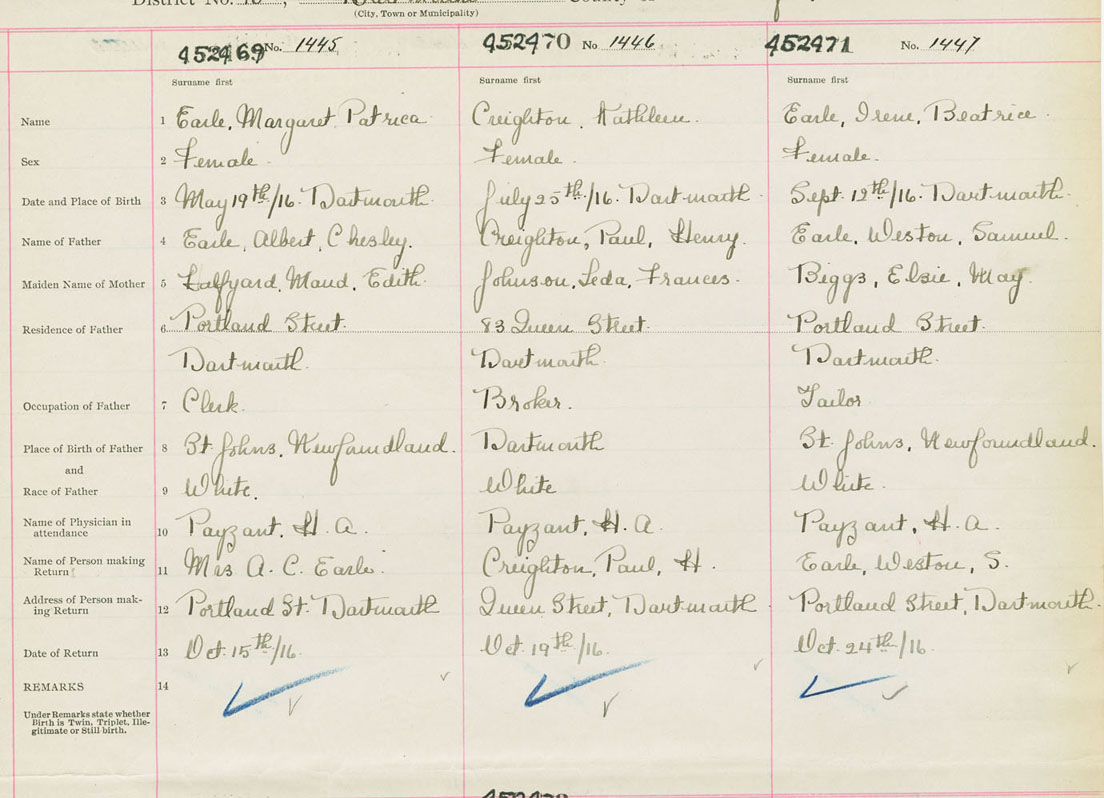 District No.
County of
(City, Town or Municipality)
452469 No. 1445 452470 No 1446 452471 No. 1447
Surname first Surname first Surname first
Name 1 Earle, Margaret Patrica Creighton, Kathleen. Earle, Irene, Beatrice.
Sex 2 Female. Female. Female.
Date and Place of Birth 3 May 19th/16. Dartmouth. July 25th/16. Dartmouth Sept. 12th/16. Dartmouth.
Name of Father 4 Earle, Albert, Chesley. Creighton, Paul, Henry. Earle, Weston, Samuel.
Maiden Name of Mother 5 Maud, Edith. Johnson, Leda, Frances. Biggs, Elsie, May.
Residence of Father 6 Portland Street. 83 Queen Street. Portland Street.
Dartmouth. Dartmouth Dartmouth.
Occupation of Father 7 Clerk. Broker. Tailor
Place of Birth of Father 8 St. Johns, Newfoundland. Dartmouth St. Johns, Newfoundland.
and
Race of Father 9 White. White White.
Name of Physician in
attendance 10 Payzant, H. A. Payzant, H. A. Payzant, H. A.
Name of Person making
Return 11 Mrs A. C. Earle. Creighton, Paul, H. Earle, Weston, S.
Address of Person mak-
ing Return 12 Portland St. Dartmouth Queen Street, Dartmouth Portland Street, Dartmouth.
Date of Return 13 Oct. 15th/16. Oct. 19th/16. Oct. 24th/16.
REMARKS 14
Under Remarks state whether
Birth is Twin, Triplet, Ille-
gitimate or Still birth.